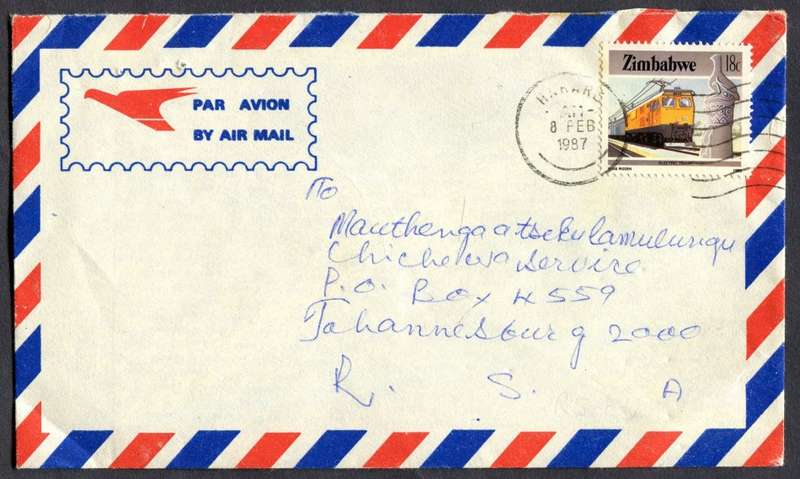 PAR AVION
BY AIR MAIL
HARARE
8 FEB
1987
Zimbabwe 18c
To
Mauthengaatsekulamulungu
Chichewa Service
P.O. Box 4559
Johannesburg 2000
R. S. A